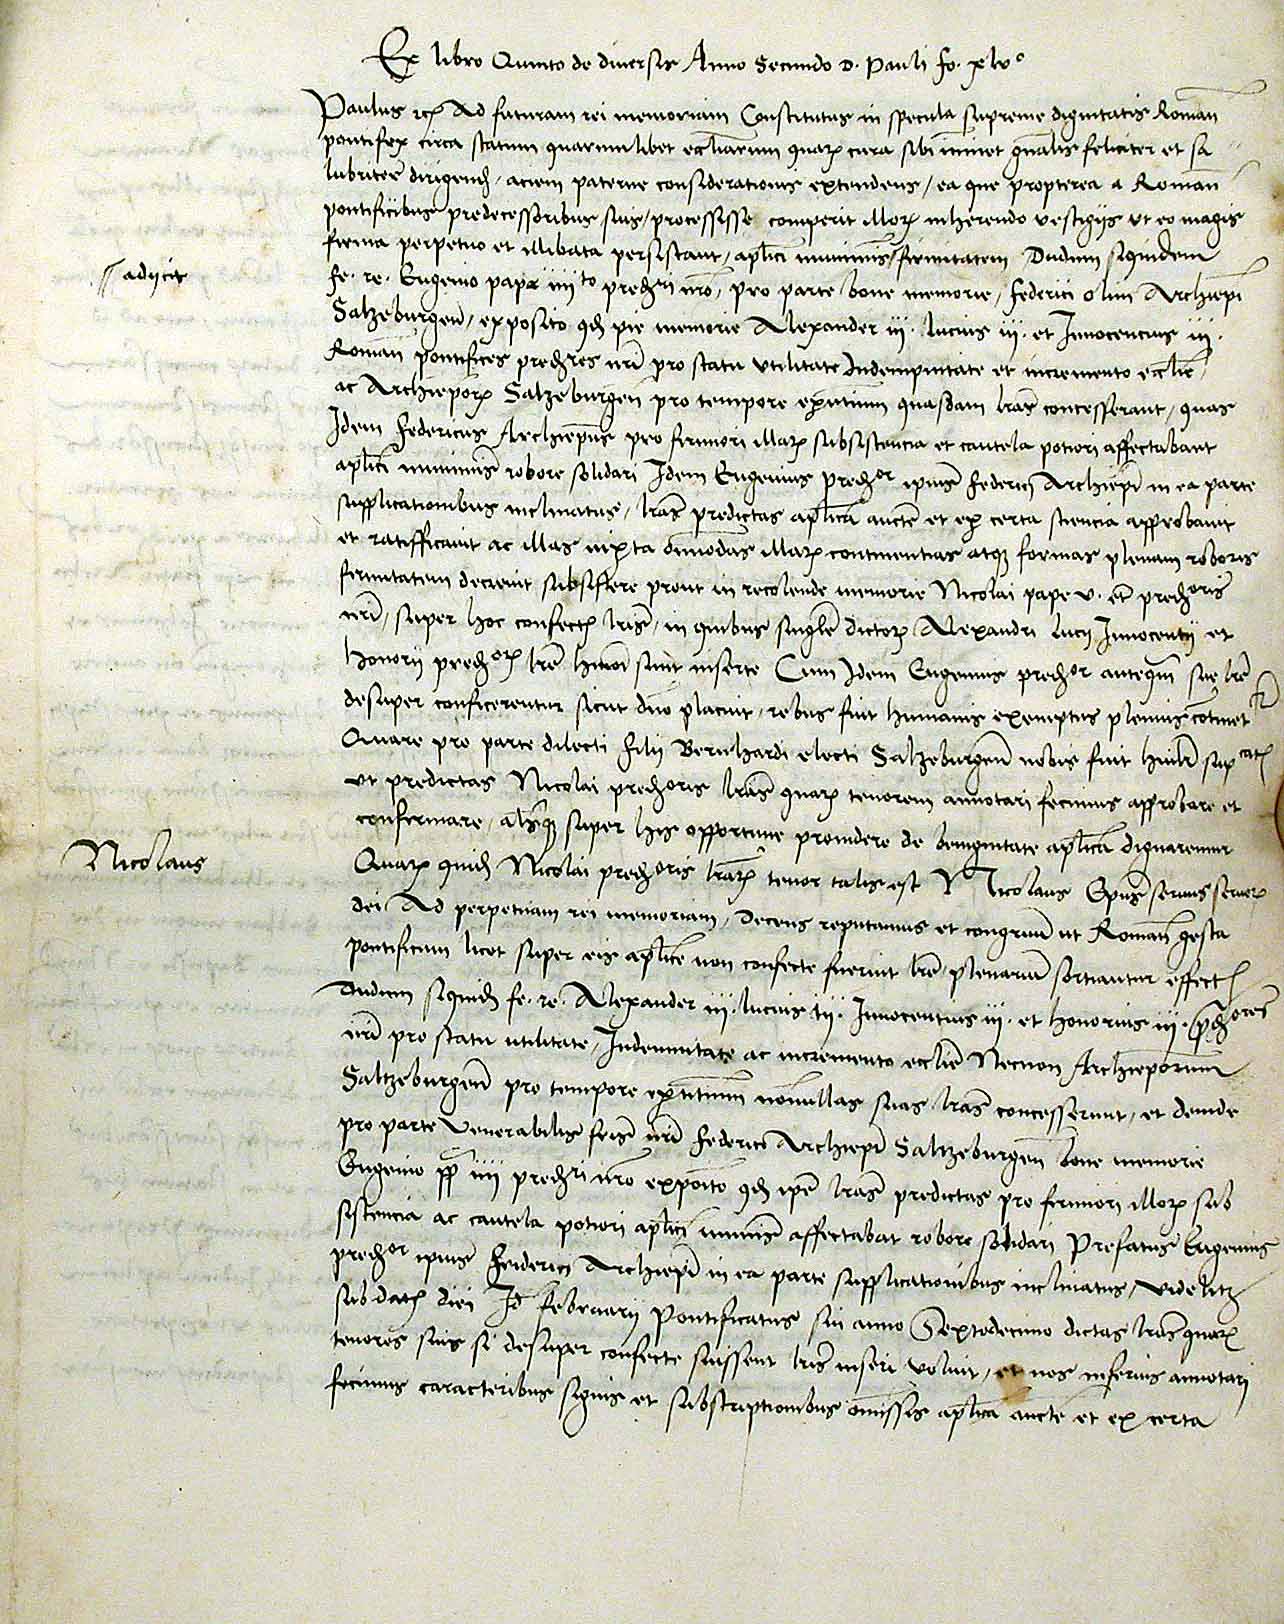 Ex libro Quinto de diversis Anno Secundo D. Pauli fo. xlv°
Paulus etc Ad futuram rei memoriam Constitutus in specula supreme dignitatis Roman
pontifex circa statum quarumlibet eccliarum quarum cura sibi iminet gnalis feliciter et sa
lubriter dirigend, aciem paterne considerationis extendens, ea que propterea a Roman
pontificibus predecessoribus suis, processisse comperit illorum inherendo vestigijs ut eo magis
firma perpetuo et illibata persistant, aplici muniminis firmitatem Dudum siquidem
adijcit
fe. re. Eugenio pape iiijto predri nro, pro parte bone memorie, federici olim Archiepi
Salzeburgen, exposito qd pie memorie Alexander iij. lucius iij. et Innocencius iij.
Roman pontifices predres nri pro statu utilitate Indempnitate et incremento ecclie
ac Archieporum Salzeburgen pro tempore exntium quasdam lras concesserant, quas
Idem federicus Archiepus pro firmiori illarum subsistencia et cautela potiori affectabat
aplici muniminis robore solidari Idem Eugenius predor ipius federici Archiepi in ea parte
supplicationibus inclinatus, lras predictas aplica aucte et ex certa sciencia approbavit
et ratifficavit ac illas iuxta omnodas illarum continentias atque formas plenam roboris
firmitatem decrevit subsistere prout in recolende memorie Nicolai pape v. et predoris
nri, super hoc confectis lris, in quibus singule dictorum Alexandri lucij Innocentij et
Honorij predorum lre hmoi sunt inserte Cum Idem Eugenius predor antequam sue lre
desuper conficerentur sicut dno placuit, rebus fuit humanis exemptus plenius continetr
Quare pro parte dilecti filij Bernhardi electi Salzeburgen nobis fuit humilr supcatum
ut predictas Nicolai predoris lras quarum tenorem annotari fecimus approbare et
confirmare, alsque super his opportune providere de benignitate aplica dignaremur
Nicolaus
Quarum quid Nicolai predoris lrarum tenor talis est Nicolaus Epus servus servorum
dei Ad perpetuam rei memoriam, Decens reputamus et congruum ut Roman gesta
pontificum licet super eis aplice non confecte fuerint lre, plenarium sortiantur effectum
Dudum siquid fe. re. Alexander iij. lucius iij. Innocentius iij. et honorius iij. predores
nri pro statu utilitate, Indemnitate ac incremento ecclie Necnon Archieporum
Saltzeburgen pro tempore exntium nonnullas suas lras concesserunt, et deinde
pro parte Venerabilis fris nri federici Archiepi Saltzeburgen bone memorie
Eugenio pp iiij predri nro exposito qd ipe lras predictas pro firmiori illorum sub
sistencia ac cautela potiori aplici muniminis affectabat robore solidari Prefatus Eugenius
predor ipius friderici Archiepi in ea parte supplicationibus inclinatus, videlitz
sub dat diei Id februarij Pontificatus sui anno Sextodecimo dictas lras quarum
tenores suis si desuper confecte fuissent lris inseri voluit, et nos inferius annotari
fecimus caracteribus signis et subscriptionibus omissis aplica aucte et ex certa